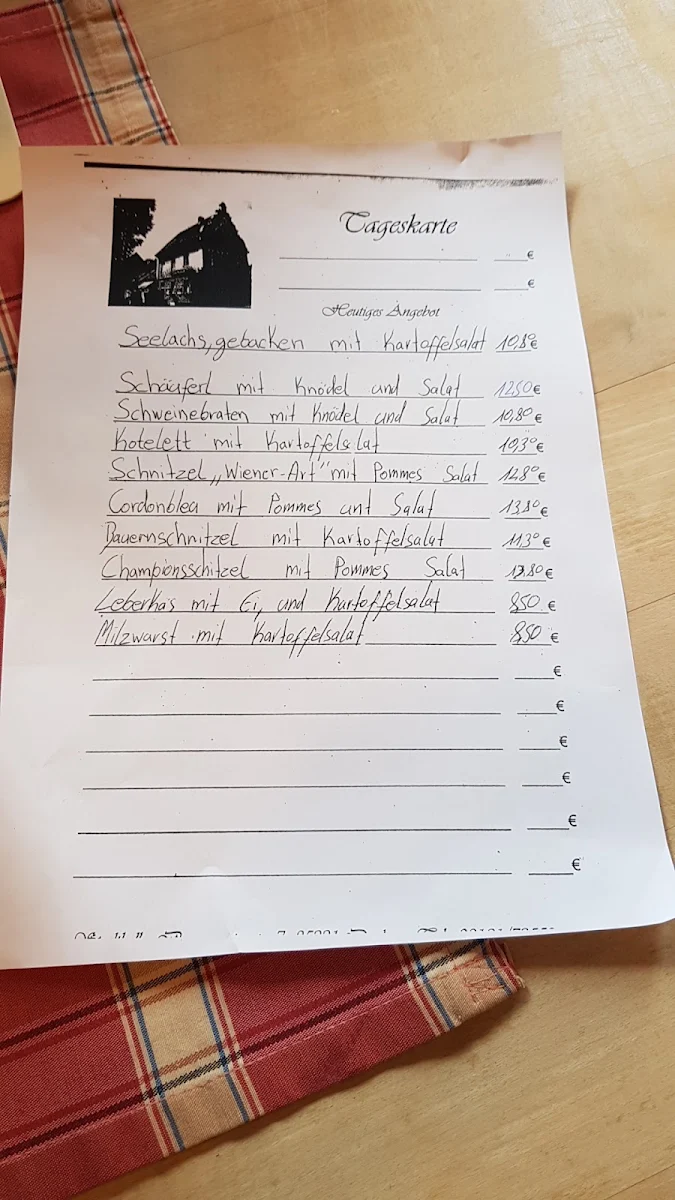 Tageskarte
€
€
Heutiges Angebot
Seelachs, gebacken mit Kartoffelsalat 10,80€
Schäuferl mit Knödel und Salat 12,50€
Schweinebraten mit Knödel und Salat 10,80€
Kotelett mit Kartoffelslat 10,30€
Schnitzel „Wiener-Art" mit Pommes Salat 12,80€
Cordonbleu mit Pommes und Salat 13,80€
Bauernschnitzel mit Kartoffelsalat 11,30€
Championsschitzel mit Pommes Salat 13,80€
Leberkäs mit Ei, und Kartoffelsalat 8,50 €
Milzwurst mit Kartoffelsalat 8,50 €
€
€
€
€
€
€